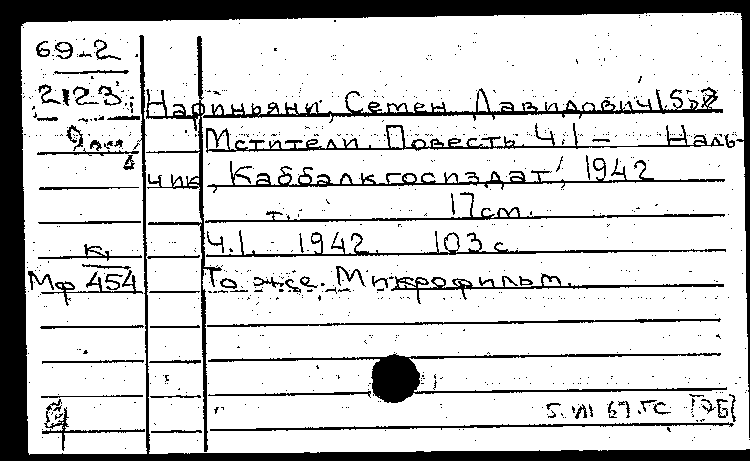 69-2
2123
Нариньяни, Семен Давидович
Мстители. Повесть. Ч.1 – Наль-
чик, Каббалкгосиздат, 1942
т. 17 см.
Ч.1. 1942. 103 с.
К1
Мф 454 То же. Микрофильм.
5.VII 67.ГС